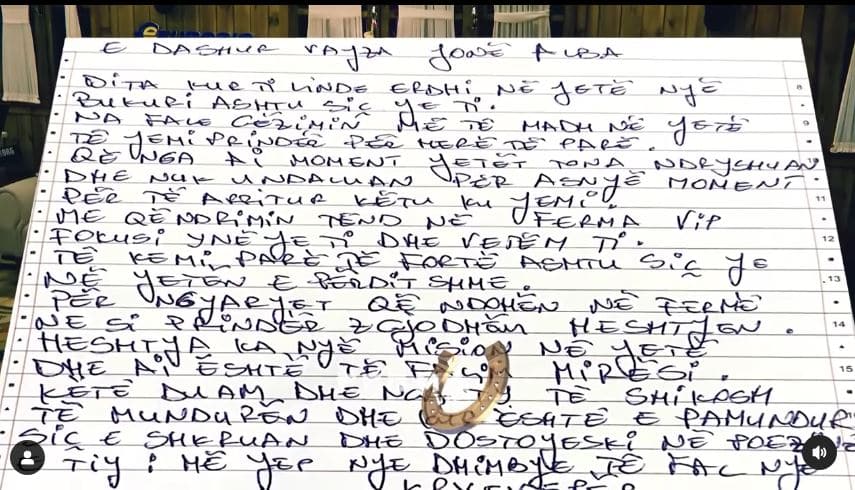 E DASHUR VAYZA JONË ALBA
DITA KUR TI LINDE ERDHI NË JETË NYË
BUKURI ASHTU SIÇ YE TI.
NA FALE GËZIMIN MË TË MADH NË YETË
TË JEMI PRINDËR PËR HERË TË PARË.
QË NGA AI MOMENT YETËT TONA NDRYSHUAN
DHE NUK U NDALUAN PËR ASNYË MOMENT
PËR TË ARRITUR KËTU KU YEMI.
ME QËNDRIMIN TËND NË FERMA VIP
FOKUSI YNË YE TI DHE VETËM TI.
TË KEMI PARË TË FORTË ASHTU SIÇ YE
NË YETEN E PËRDITSHME.
PËR NGYARYET QË NDOHËN NË FERMË
NE SI PRINDËR ZGJODHËM HESHTJEN.
HESHTYA KA NYË MISION NË YETË
DHE AI ËSHTË TË MIRËSI.
KËTË DUAM DHE TË SHIKOSH
TË MUNDURËN DHE ËSHTË E PAMUNDUR
SIÇ E SHKRUAN DHE DOSTOYESKI NË
TIY : MË YEP NYE DHIMBYE TË FAL NYË
8
9
11
12
13
14
15